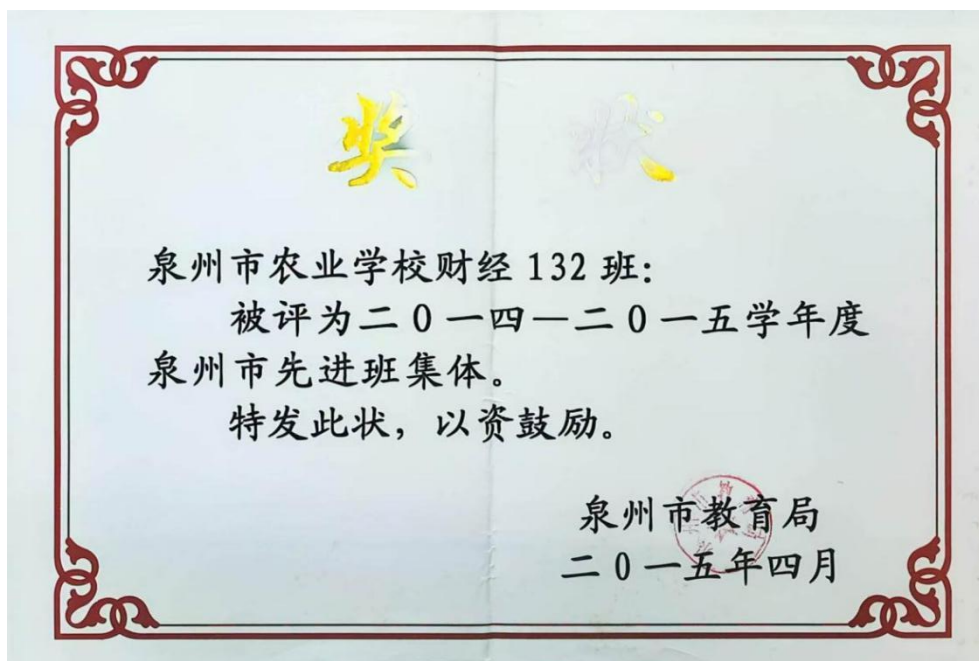 奖状
泉州市农业学校财经132班：
被评为二0一四—二0一五学年度
泉州市先进班集体。
特发此状，以资鼓励。
泉州市教育局
二0一五年四月